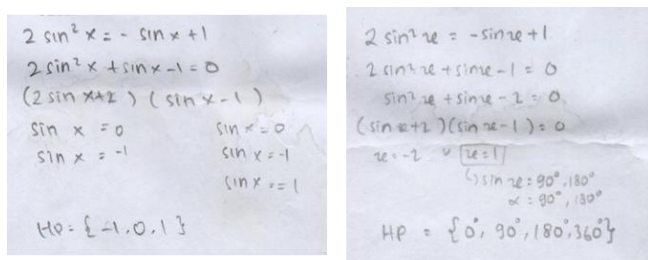 2 sin² x = - sin x + 1
2 sin² x + sin x - 1 = 0
(2 sin x + 2) (sin x - 1)
sin x = 0
sin x = -1
sin x = 0
sin x = -1
sin x = 1
HP = {-1, 0, 1}
2 sin² x = -sin x + 1
2 sin² x + sin x - 1 = 0
sin² x + sin x - 2 = 0
(sin x + 2)(sin x - 1) = 0
x = -2 v x = 1
↳ sin x = 90°, 180°
α = 90°, 180°
HP = {0°, 90°, 180°, 360°}